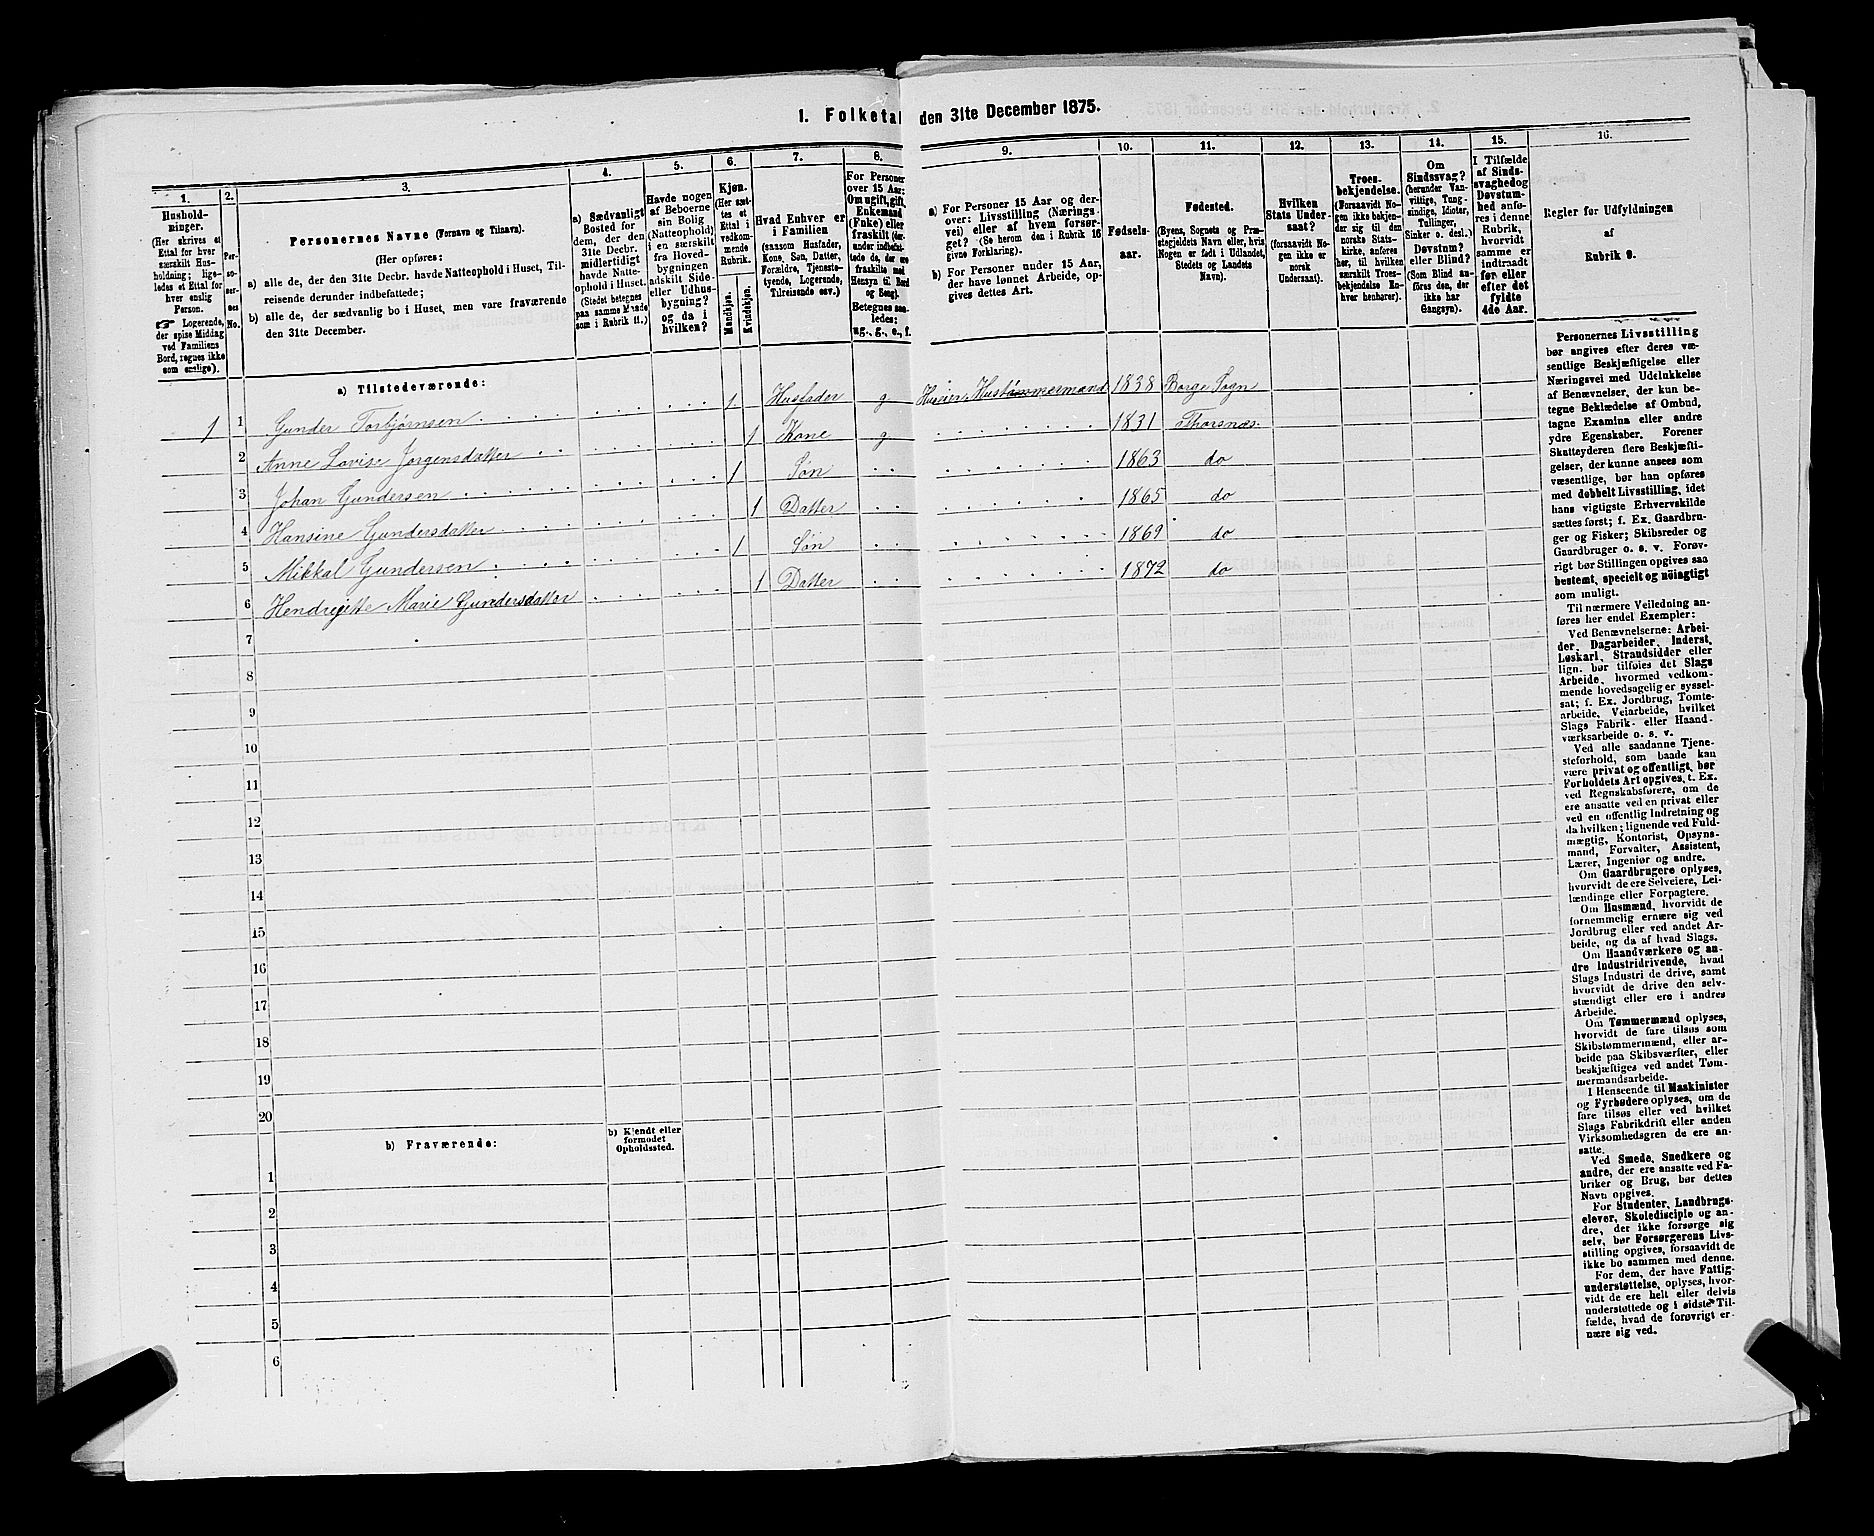 1. Folketal den 31te December 1875.
1.
Hushold-
ninger.
(Her skrives et
Ettal for hver
særskilt Hus-
holdning; lige-
ledes et Ettal for
hver enslig
Person.
☞ Logerende,
der spise Middag
ved Familiens
Bord, regnes ikke
som enslige).
2.
Per-
so-
ner-
nes
No.
3.
Personernes Navne (Fornavn og Tilnavn).
(Her opføres:
a) alle de, der den 31te Decbr. havde Natteophold i Huset, Til-
reisende derunder indbefattede;
b) alle de, der sædvanlig bo i Huset, men vare fraværende
den 31te December.
4.
a) Sædvanligt
Bosted for
dem, der den
31te Decbr.
midlertidigt
havde Natte-
ophold i Huset.
(Stedet betegnes
paa samme Maade
som i Rubrik 11.)
5.
Havde nogen
af Beboerne
sin Bolig
(Natteophold)
i en særskilt
fra Hoved-
bygningen
adskilt Side-
eller Udhus-
bygning?
og da i
hvilken?
6.
Kjøn.
(Her sæt-
tes et
Ettal i
vedkom-
mende
Rubrik.
Mandkjøn.
Kvindekjøn.
7.
Hvad Enhver er
i Familien
(saasom Husfader,
Kone, Søn, Datter,
Forældre, Tjeneste-
tyende, Logerende,
Tilreisende osv.)
8.
For Personer
over 15 Aar:
Om ugift, gift,
Enkemand
(Enke) eller
fraskilt (der-
under indbefat-
tede de, der ere
fraskilte med
Hensyn til Bord
og Seng).
Betegnes saa-
ledes:
ug., g., e., f.
9.
a) For Personer 15 Aar og der-
over: Livsstilling (Nærings-
vei) eller af hvem forsør-
get? (Se herom den i Rubrik 16
givne Forklaring).
b) For Personer under 15 Aar,
der have lønnet Arbeide, op-
gives dettes Art.
10.
Fødsels-
aar.
11.
Fødested.
(Byens, Sognets og Præ-
stegjeldets Navn eller, hvis
Nogen er født i Udlandet,
Stedets og Landets
Navn).
12.
Hvilken
Stats Under-
saat?
(forsaavidt No-
gen ikke er
norsk
Undersaat).
13.
Troes-
bekjendelse.
(Forsaavidt No-
gen ikke bekjen-
der sig til den
norske Stats-
kirke, anføres
her, til hvilken
særskilt Troes-
bekjendelse En-
hver henhører).
14.
Om
Sindssvag?
(herunder Van-
vittige, Tung-
sindige, Idioter,
Tullinger,
Sinker o. desl.)
Døvstum?
eller Blind?
(Som Blind an-
føres den, der
ikke har
Gangsyn).
15.
I Tilfælde
af Sinds-
svaghed og
Døvstum-
hed anfø-
res i denne
Rubrik,
hvorvidt
samme er
indtraadt
før eller
efter det
fyldte
4de Aar.
16.
Regler for Udfyldningen
af
Rubrik 9.
a) Tilstedeværende:
1 1 Gunder Torbjørnsen 1 Husfader g Huseier, Hustømmermand 1838 Borge Sogn
2 Anne Lovise Jørgensdatter 1 Kone g 1831 Thorsnæs
3 Johan Gundersen 1 Søn 1863 do
4 Hansine Gundersdatter 1 Datter 1865 do
5 Mikkal Gundersen 1 Søn 1869 do
6 Hendregitte Marie Gundersdatter 1 Datter 1872 do
7
8
9
10
11
12
13
14
15
16
17
18
19
20
b) Fraværende:
b) Kjendt eller
formodet
Opholdssted.
1
2
3
4
5
6
Personernes Livsstilling
bør angives efter deres væ-
sentlige Beskjæftigelse eller
Næringsvei med Udelukkelse
af Benævnelser, der kun be-
tegne Beklædelse af Ombud,
tagne Examina eller andre
ydre Egenskaber. Forener
Skatteyderen flere Beskjæfti-
gelser, der kunne ansees som
væsentlige, bør han opføres
med dobbelt Livsstilling, idet
hans vigtigste Erhvervskilde
sættes først; f. Ex. Gaardbru-
ger og Fisker; Skibsreder og
Gaardbruger o. s. v. Forøv-
rigt bør Stillingen opgives saa
bestemt, specielt og nøiagtigt
som muligt.
Til nærmere Veiledning an-
føres her endel Exempler:
Ved Benævnelserne: Arbei-
der, Dagarbeider, Inderst,
Løskarl, Strandsidder eller
lign. bør tilføies det Slags
Arbeide, hvormed vedkom-
mende hovedsagelig er syssel-
sat; f. Ex. Jordbrug, Tomte-
arbeide, Veiarbeide, hvilket
Slags Fabrik- eller Haand-
værksarbeide o. s. v.
Ved alle saadanne Tjene-
steforhold, som baade kan
være privat og offentligt, bør
Forholdets Art opgives, t. Ex.
ved Regnskabsførere, om de
ere ansatte ved en privat eller
ved en offentlig Indretning og
da hvilken; lignende ved Fuld-
mægtig, Kontorist, Opsyns-
mand, Forvalter, Assistent,
Lærer, Ingeniør og andre.
Om Gaardbrugere oplyses,
hvorvidt de ere Selveiere, Lei-
lændinge eller Forpagtere.
Om Husmænd, hvorvidt de
fornemmelig ernære sig ved
Jordbrug eller ved andet Ar-
beide, og da af hvad Slags.
Om Haandværkere og an-
dre Industridrivende, hvad
Slags Industri de drive, samt
hvorvidt de drive den selv-
stændigt eller ere i andres
Arbeide.
Om Tømmermænd oplyses,
hvorvidt de fare tilsøs som
Skibstømmermænd, eller ar-
beide paa Skibsværfter, eller
beskjæftiges ved andet Tøm-
mermandsarbeide.
I Henseende til Maskinister
og Fyrbødere oplyses, om de
fare tilsøs eller ved hvilket
Slags Fabrikdrift eller anden
Virksomhedsgren de ere an-
satte.
Ved Smede, Snedkere og
andre, der ere ansatte ved Fa-
briker og Brug, bør dettes
Navn opgives.
For Studenter, Landbrugs-
elever, Skoledisciple og an-
dre, der ikke forsørge sig
selv, bør Forsørgerens Livs-
stilling opgives, forsaavidt de
ikke bo sammen med denne.
For dem, der have Fattig-
understøttelse, oplyses, hvor-
vidt de ere helt eller delvis
understøttede og i sidste Til-
fælde, hvad de forøvrigt er-
nære sig ved.